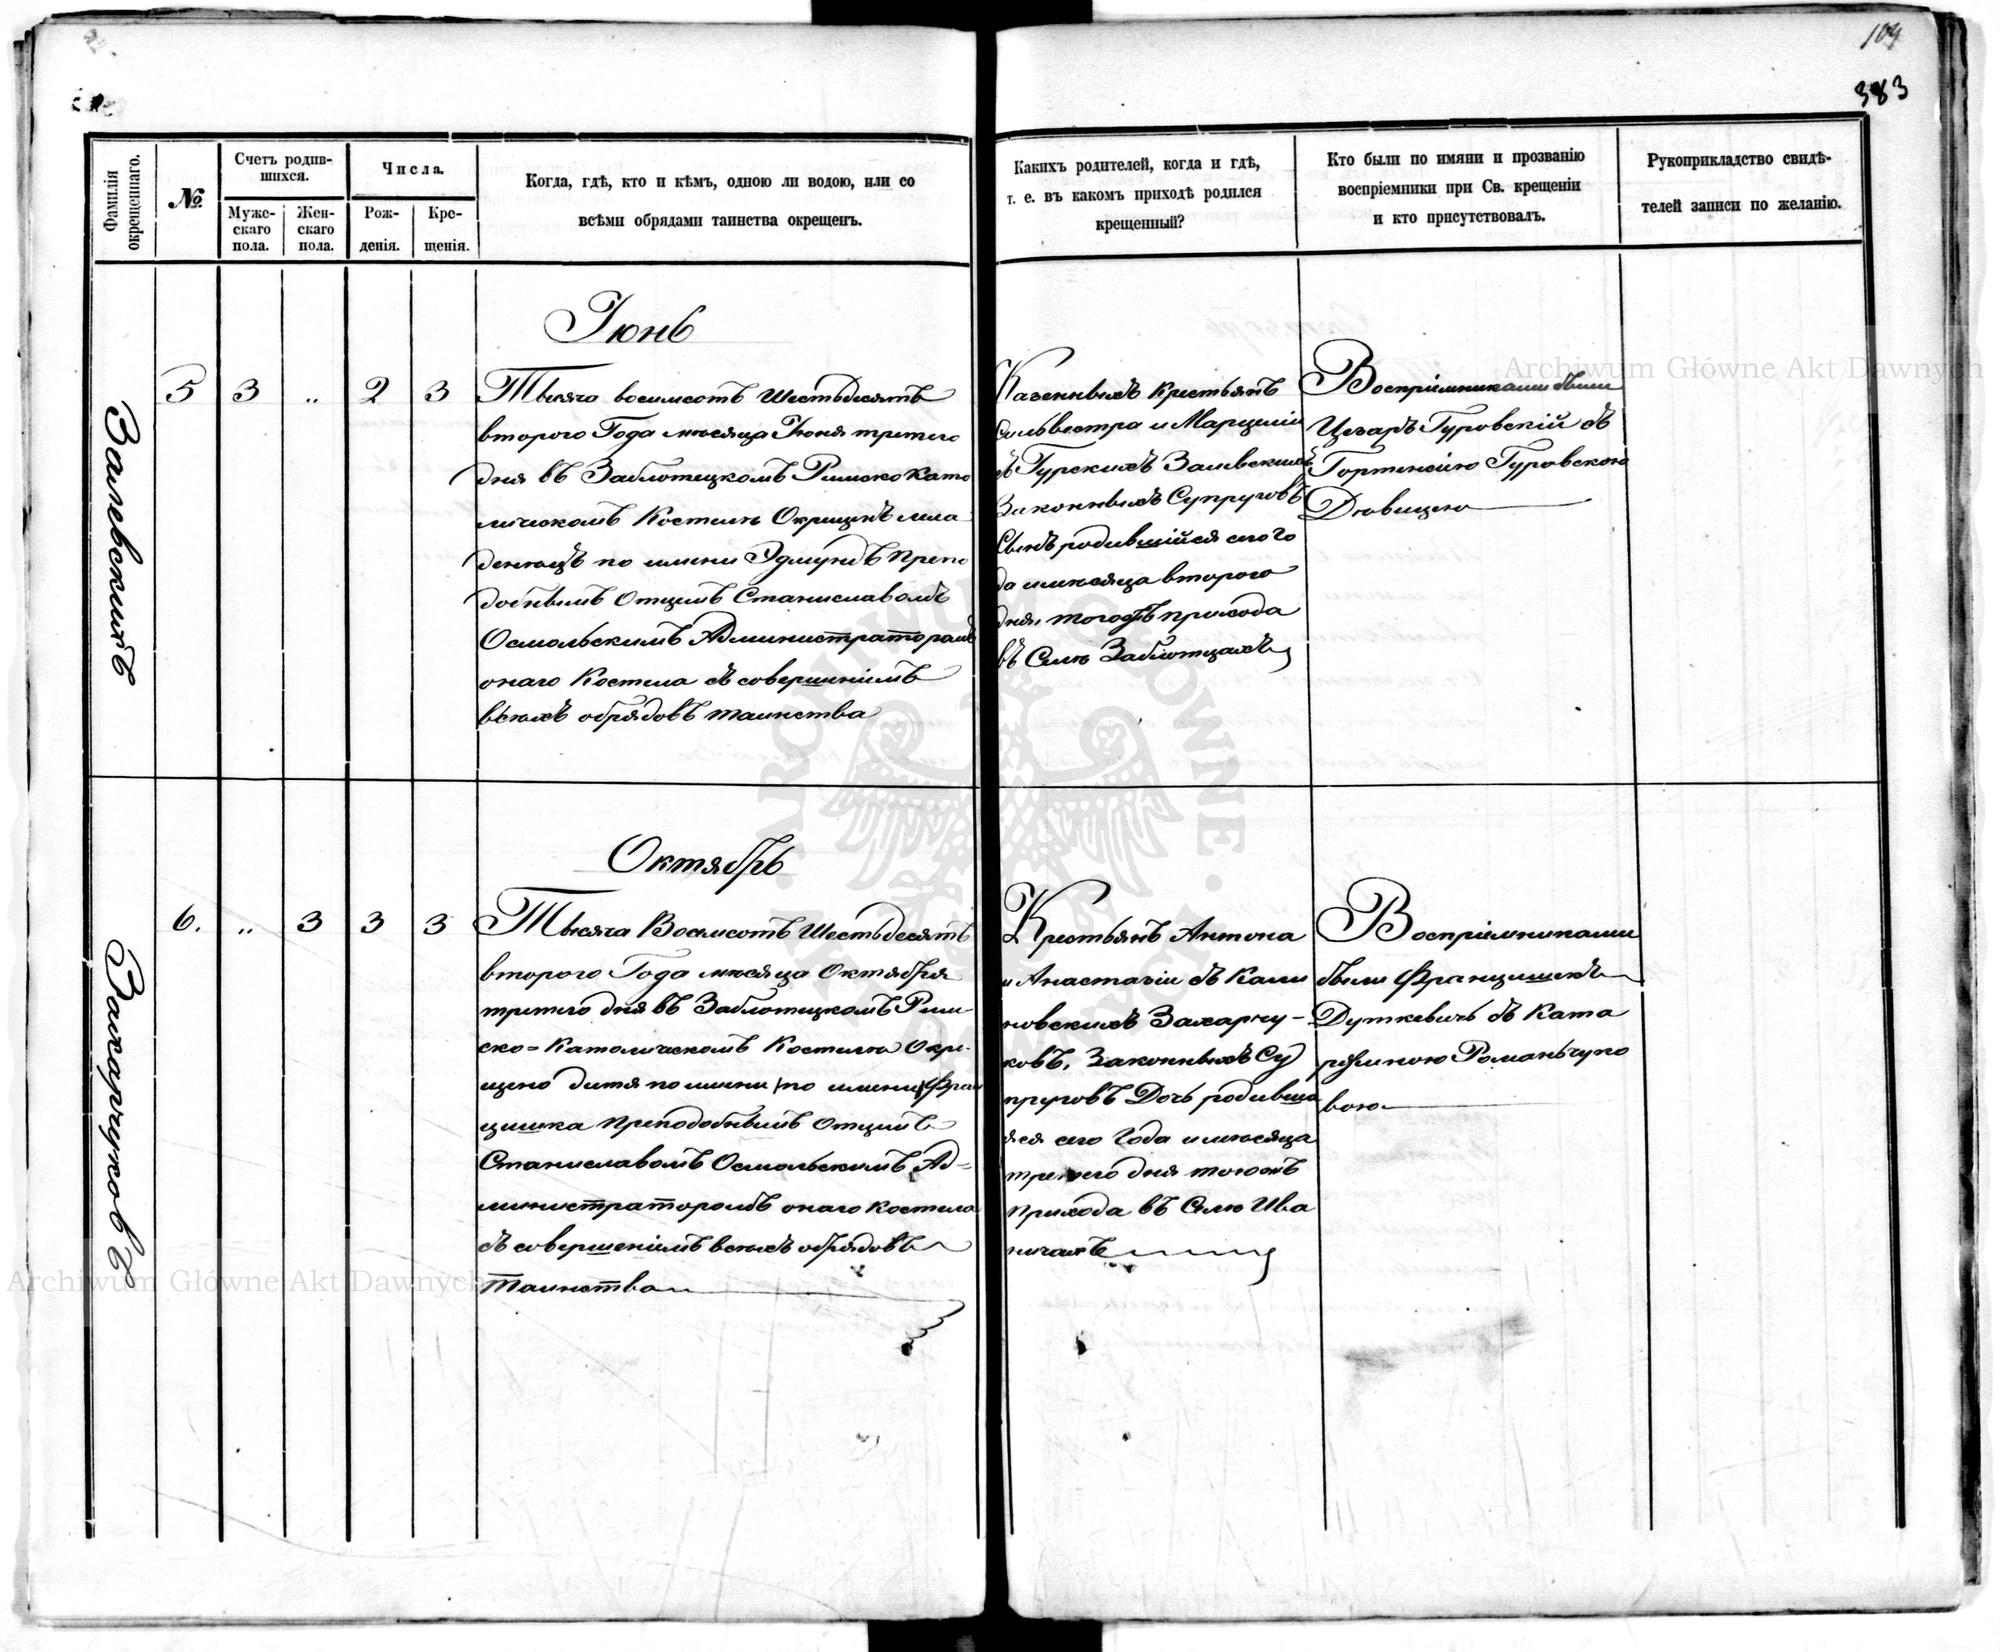 104
383
Фамилія
окрещеннаго.
№
Счетъ родив-
шихся.
Муже-
скаго
пола.
Жен-
скаго
пола.
Числа.
Рож-
денія.
Кре-
щенія.
Когда, гдѣ, кто и кѣмъ, одною ли водою, или со
всѣми обрядами таинства окрещенъ.
Какихъ родителей, когда и гдѣ,
т. е. въ какомъ приходѣ родился
крещенный?
Кто были по имяни и прозванію
воспріемники при Св. крещеніи
и кто присутствовалъ.
Рукоприкладство свидѣ-
телей записи по желанію.
Залевскихъ
5 3 „ 2 3
Іюнь
Тысяча восимсотъ Шестьдесятъ
второго Года мѣсяца Іюня третего
дня въ Заблотецкомъ Римско Като
личокомъ Костелѣ Окрищенъ мла
денецъ по имени Эдмундъ Препо
добнымъ Отцемъ Станиславомъ
Осмольскимъ Администраторомъ
онаго Костела съ совершеніемъ
всѣхъ обрядовъ таинства
Казенныхъ Крестьянъ
Сильвестра и Марцеліи
съ Гурскихъ Залевскихъ
Законныхъ Супруговъ
Сынъ родившійся сего го
да и мѣсяца второго
дня тогожъ прихода
въ Селѣ Заблотцахъ
Воспріемниками были
Цезаръ Гуровскій съ
Гортенсіею Гуровскою
Дѣвицею
Захарчуковъ
6. „ 3 3 3
Октябрь
Тысяча Восимсотъ Шестьдесятъ
второго Года мѣсяца Октября
третего дня въ Заблотецкомъ Рим
ско-Католическомъ Костелѣ Окре-
щено дитя по имени по имени Фран
цишка преподобнымъ Отцемъ
Станиславомъ Осмольскимъ Ад-
министраторомъ онаго Костела
съ совершеніемъ всѣхъ обрядовъ
Таинства
Крестьянъ Антона
и Анастазіи съ Кали
новскихъ Захарчу-
ковъ, Законныхъ Су
пруговъ Дочь родивша
яся сего Года и мѣсяца
третего дня тогожъ
прихода въ Селѣ Ива
ничахъ
Воспріемниками
были Францишекъ
Дуткевичъ съ Ката
ржиною Романьчуко
вою
Archiwum Główne Akt Dawnych
Archiwum Główne Akt Dawnych